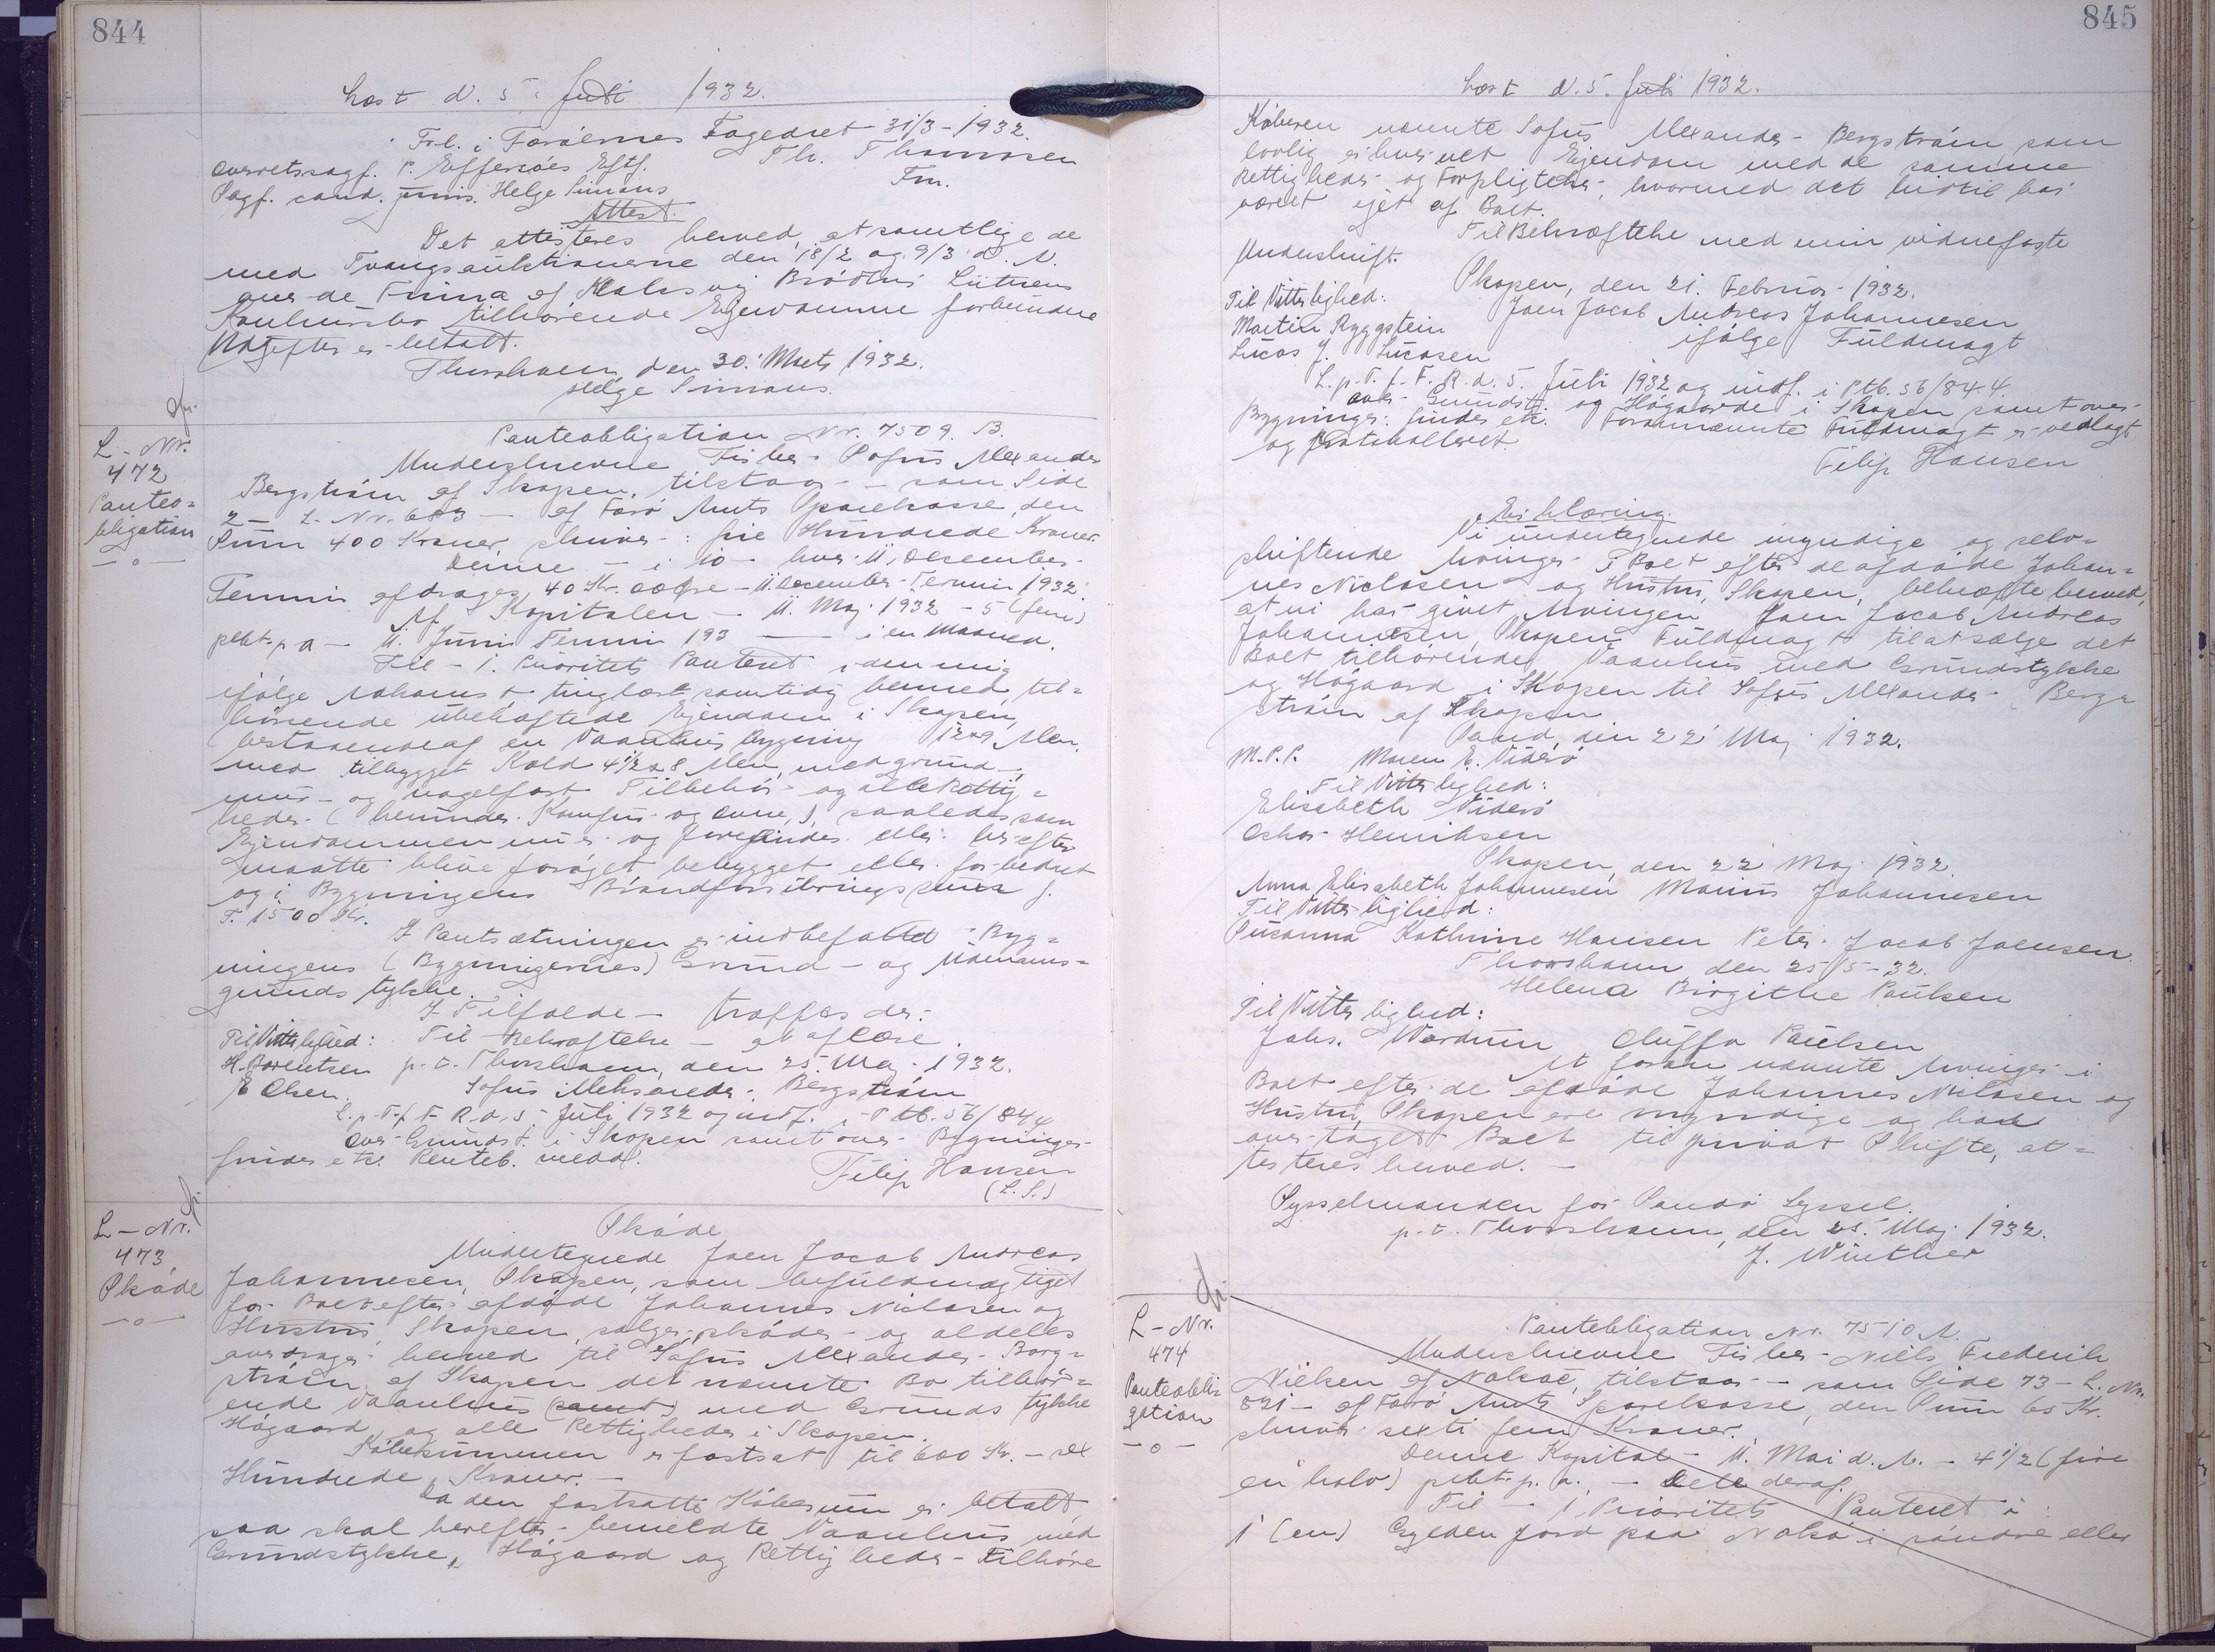 844
Læst d. 5. Juli 1932.
Frl. i Færöernes Fogedret 31/3-1932.
Overretssagf. P. Effersöes Eftf. Th. Thomsen
Sagf. cand. juris. Helge Simans Fm.
Attest.
Det attesteres herved, at samtlige de
med Tvangsauktionerne den 18/2 og 9/3 d. A.
over de Firma af Brödrs Lützens
Konkursbo tilhörende Ejendomme forbundne
Udgifter er betalt.
Thorshavn, den 30. Marts 1932.
Helge Simans.
L-Nr.
472
Panteo=
bligation
-o-
Panteobligation Nr. 7509. B.
Underskrevne Fisker Sofus Alexander
Bergström af Skopen, tilstaar - som Side
2 - L. Nr. 683 - af Færö Amts Sparekasse, den
Sum 400 Kroner, skriver: fire Hundrede Kroner.
Denne - i 10 - hver 11, December-
Termin afdrages 40 Kr. - 11. December-Termin 1932.
Af Kapitalen - 11. Maj 1932 - 5 (fem)
pCt. p. a - 11. Juni Termin 193 - i en Maaned.
Til - 1. Prioritets Panteret i den mig
ifölge Adkomst, tinglæst samtidig hermed, til=
hörende ubehæftede Ejendom i Skopen,
bestaaende af en Vaanhus bygning 12x9 Alen,
med tilbygget Kold 4 1/2 x 8 Alen, med grund-,
mur- og nagelfast Tilbehör og alle Rettig=
heder. (herunder Komfur og Ovne,), saaledes som
Ejendommen nu er og forefindes eller herefter
maatte blive foröget bebygget eller forbedret
og i Bygningens Brandforsikringssum f.
T. 1500 Kr.
I Pantsætningen er indbefattet Byg=
ningens (Bygningernes) Grund - og
grundstykke.
I Tilfælde - træffes der.
Til Vitterlighed: Til Bekræftelse - at aflæse.
H. Berentsen p. t. Thorshavn, den 25. Maj 1932.
E Olsen. Sofus Aleksander Bergström
L. p. T. f. F. R. d. 5. Juli 1932 og indf. i Ptb. 56/844
over Grundst. i Skopen samt over Bygninger
findes etc. Renteb. vedd.
Filip Hansen
(L.S.)
L-Nr.
473
Sköde
-o-
Sköde
Undertegnede Joen Jacob Andreas
Johannesen, Skopen, som befuldmægtiget
for Boet efter afdöde Johannes Niclasen og
Hustru, Skopen, sælger, sköder og aldeles
overdrager herved til Sofus Alexander Berg=
ström af Skopen det nævnte Bo tilhör=
ende Vaanhus (samt) med Grundstykke
Högaard og alle Rettigheder i Skopen.
Köbesummen er fastsat til 600 Kr. - sex
Hundrede Kroner. -
Da den fastsatte Köbesum er betalt,
saa skal herefter bemeldte Vaanhus med
Grundstykke, Högaard og Rettigheder tilhöre
845
Læst d. 5. Juli 1932.
Köberen nævnte Sofus Alexander Bergström som
lovlig erhvervet Ejendom med de samme
Rettigheder og Forpligtelser, hvormed det hidtil har
været ejet af Boet.
Til Bekræftelse med min vidnefaste
Underskrift.
Skopen, den 21. Februar 1932.
Til Vitterlighed: Joen Jacob Andreas Johannesen
Martin Ryggstein ifölge Fuldmagt
Lucas J. Lucasen
L. p. T. f. F. R. d. 5. Juli 1932 og indf. i Ptb. 56/844.
over Grundst. og Högaarde i Skopen samt over
Bygninger: findes etc. Forannævnte Fuldmagt er vedlagt
og protokolleret.
Filip Hansen
Erklæring.
Vi undertegnede myndige og selv=
skiftende Arvinger i Boet efter de afdöde Johan=
nes Niclasen og Hustru, Skopen, bekræfte herved,
at vi har givet Arvingen Joen Jacob Andreas
Johannesen, Skopen Fuldmagt til at sælge det
Boet tilhörende Vaanhus med Grundstykke
og Högaard i Skopen til Sofus Alexander Berg=
ström af Skopen
Sand, den 22' Maj 1932.
M.P.P. Maren E. Viderö
Til Vitterlighed:
Elisabeth Viderö
Oskar Henriksen
Skopen, den 22' Maj 1932.
Anna Elisabeth Johannesen Marius Johannesen
Til Vitterlighed:
Susanna Kathrine Hansen Peter Jacob Joensen.
Thorshavn, den 25/5-32.
Helena Birgithe Poulsen
Til Vitterlighed:
Johs. Wardum Oluffa Poulsen
At foran nævnte Arvinger i
Boet efter de afdöde Johannes Niclasen og
Hustru, Skopen ere myndige og have
overtaget Boet til privat Skifte, at=
testeres herved. -
Sysselmanden for Sandö Syssel.
p. t. Thorshavn, den 25. Maj 1932.
J. Winther
L-Nr.
474
Panteobli=
gation
-o-
Panteobligation Nr. 7510 A.
Underskrevne Fisker Niels Frederik
Nielsen af Nolsoe, tilstaar - som Side 73 - L. Nr.
821 - af Færö Amts Sparekasse, den Sum 65 Kr.
skriver sexti fem Kroner.
Denne Kapital - 11. Mai d. A. - 4 1/2 (fire
en halv) pCt. p. a. - Dele deraf.
Til - 1. Prioritets Panteret i:
1 (en) Gylden Jord paa Nolsö i söndre eller